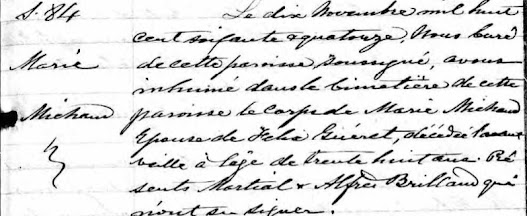 S. 84
Le dix Novembre mil huit
cent soixante & quatorze, Nous Curé
Marie
de cette paroisse soussigné, avons
inhumé dans le Cimetière de cette
Michaud
paroisse le Corps de Marie Michaud
Epouse de Felix Guéret, décédée l'avant
veille à l'âge de trente huit ans. Pré
sents Martial & Alfred Brilland qui
n'ont su signer.